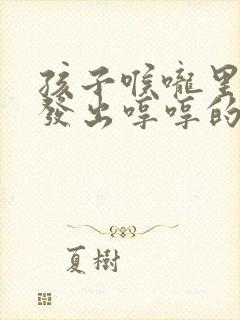 孩子喉嚨里
發出哼哼的
夏樹